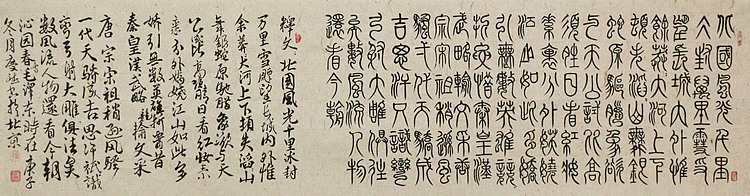 北國風光千里
冰封萬里雪飄
望長城內外惟
餘莽莽大河上下
頓失滔滔山舞銀
蛇原馳臘象欲
與天公試比高
須晴日看紅妝
素裹分外妖嬈
江山如此多嬌
引無數英雄競
折腰惜秦皇漢
武略輸文采唐
宗宋祖稍遜風
騷一代天驕成
吉思汗只識彎
弓射大雕俱往
矣數風流人物
還看今朝
釋文 北國風光千里冰封
万里雪飄望長城內外惟
余莽莽大河上下頓失滔滔山
舞銀蛇原馳腊象欲与天
公试比高須晴日看红妆素
裹分外妖娆江山如此多
娇引無数英雄競折腰惜
秦皇漢武略输文采
唐宗宋祖稍逊风骚
一代天骄成吉思汗只識
弯弓射大雕俱往矣
数風流人物還看今朝
沁园春雪毛泽东詩庚子
冬月书於北京